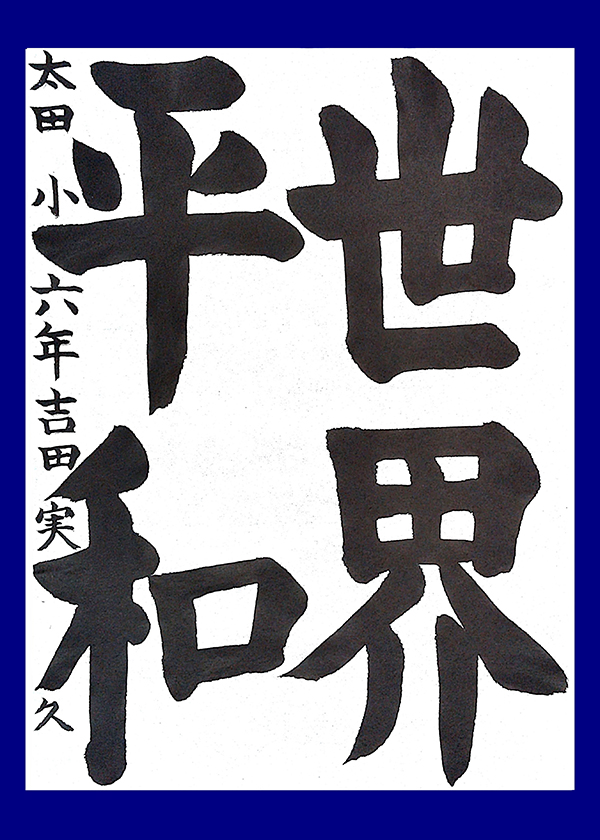 世界
平和
太田小六年吉田実久